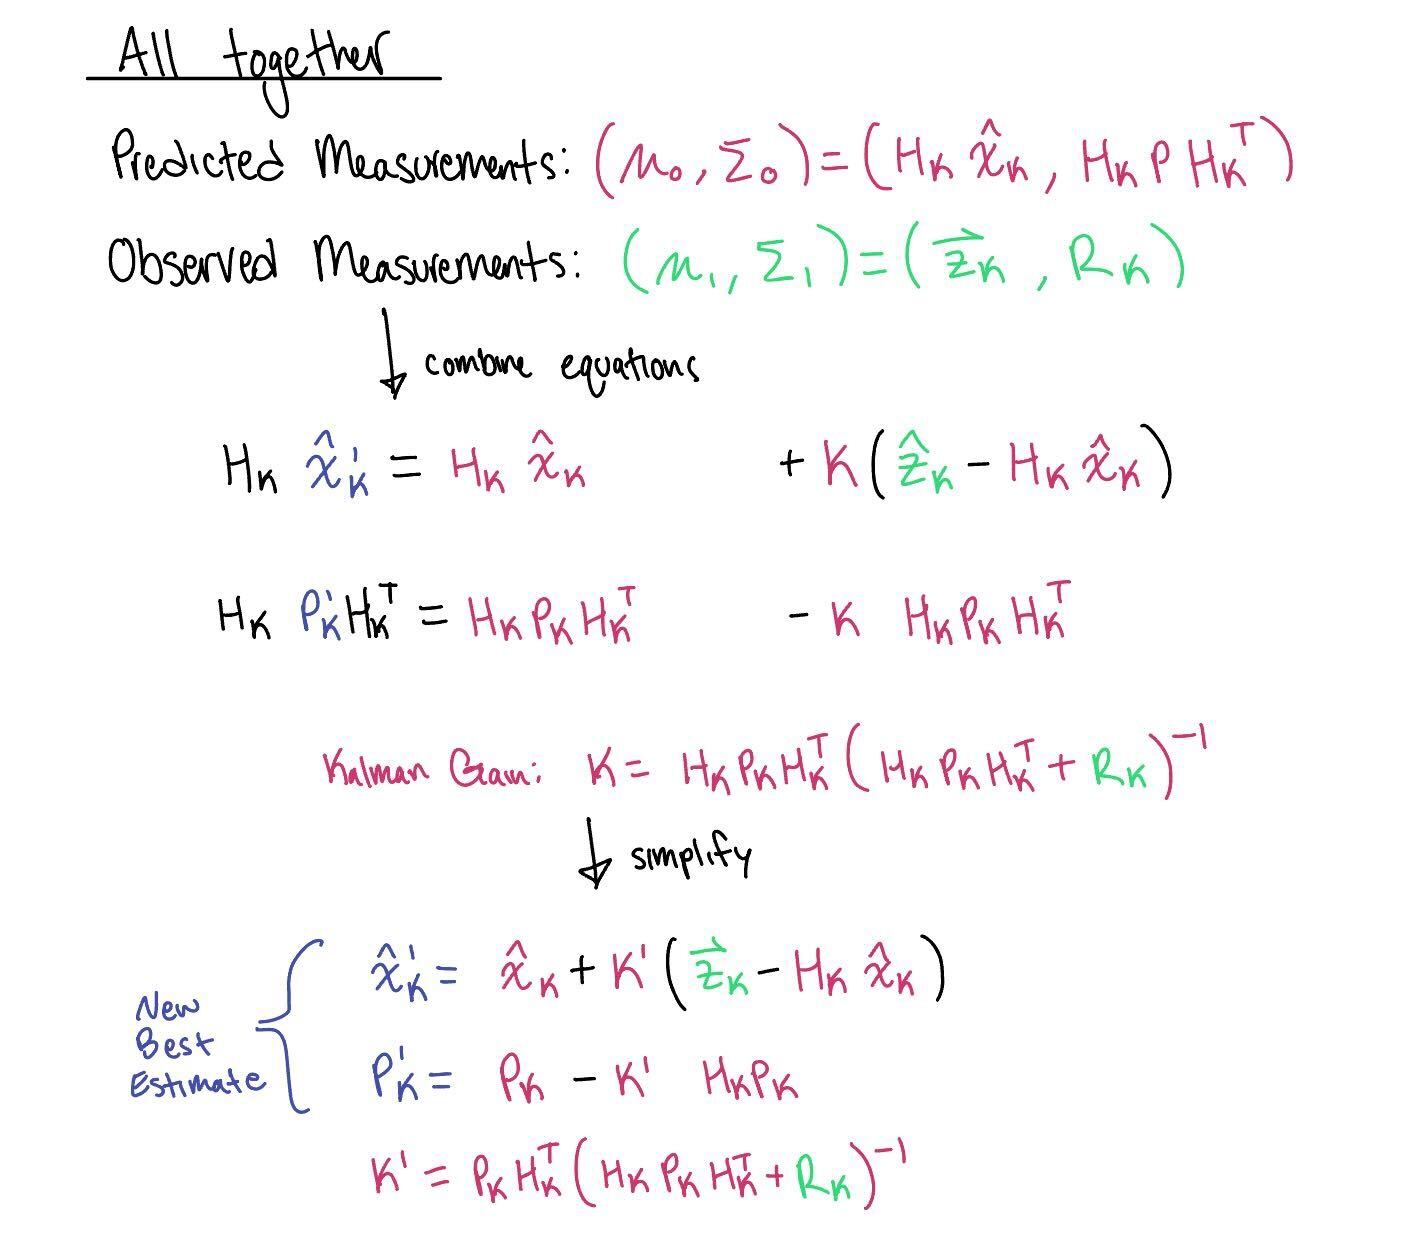 All together
Predicted Measurements: (μ₀, Σ₀) = (H_K x̂_K, H_K P H_Kᵀ)
Observed Measurements: (μ₁, Σ₁) = (z⃗_K, R_K)
↓ combine equations
H_K x̂'_K = H_K x̂_K + K(ẑ_K - H_K x̂_K)
H_K P'_K H_Kᵀ = H_K P_K H_Kᵀ - K H_K P_K H_Kᵀ
Kalman Gain: K = H_K P_K H_Kᵀ (H_K P_K H_Kᵀ + R_K)⁻¹
↓ simplify
x̂'_K = x̂_K + K'(z⃗_K - H_K x̂_K)
New
Best
Estimate
P'_K = P_K - K' H_K P_K
K' = P_K H_Kᵀ (H_K P_K H_Kᵀ + R_K)⁻¹